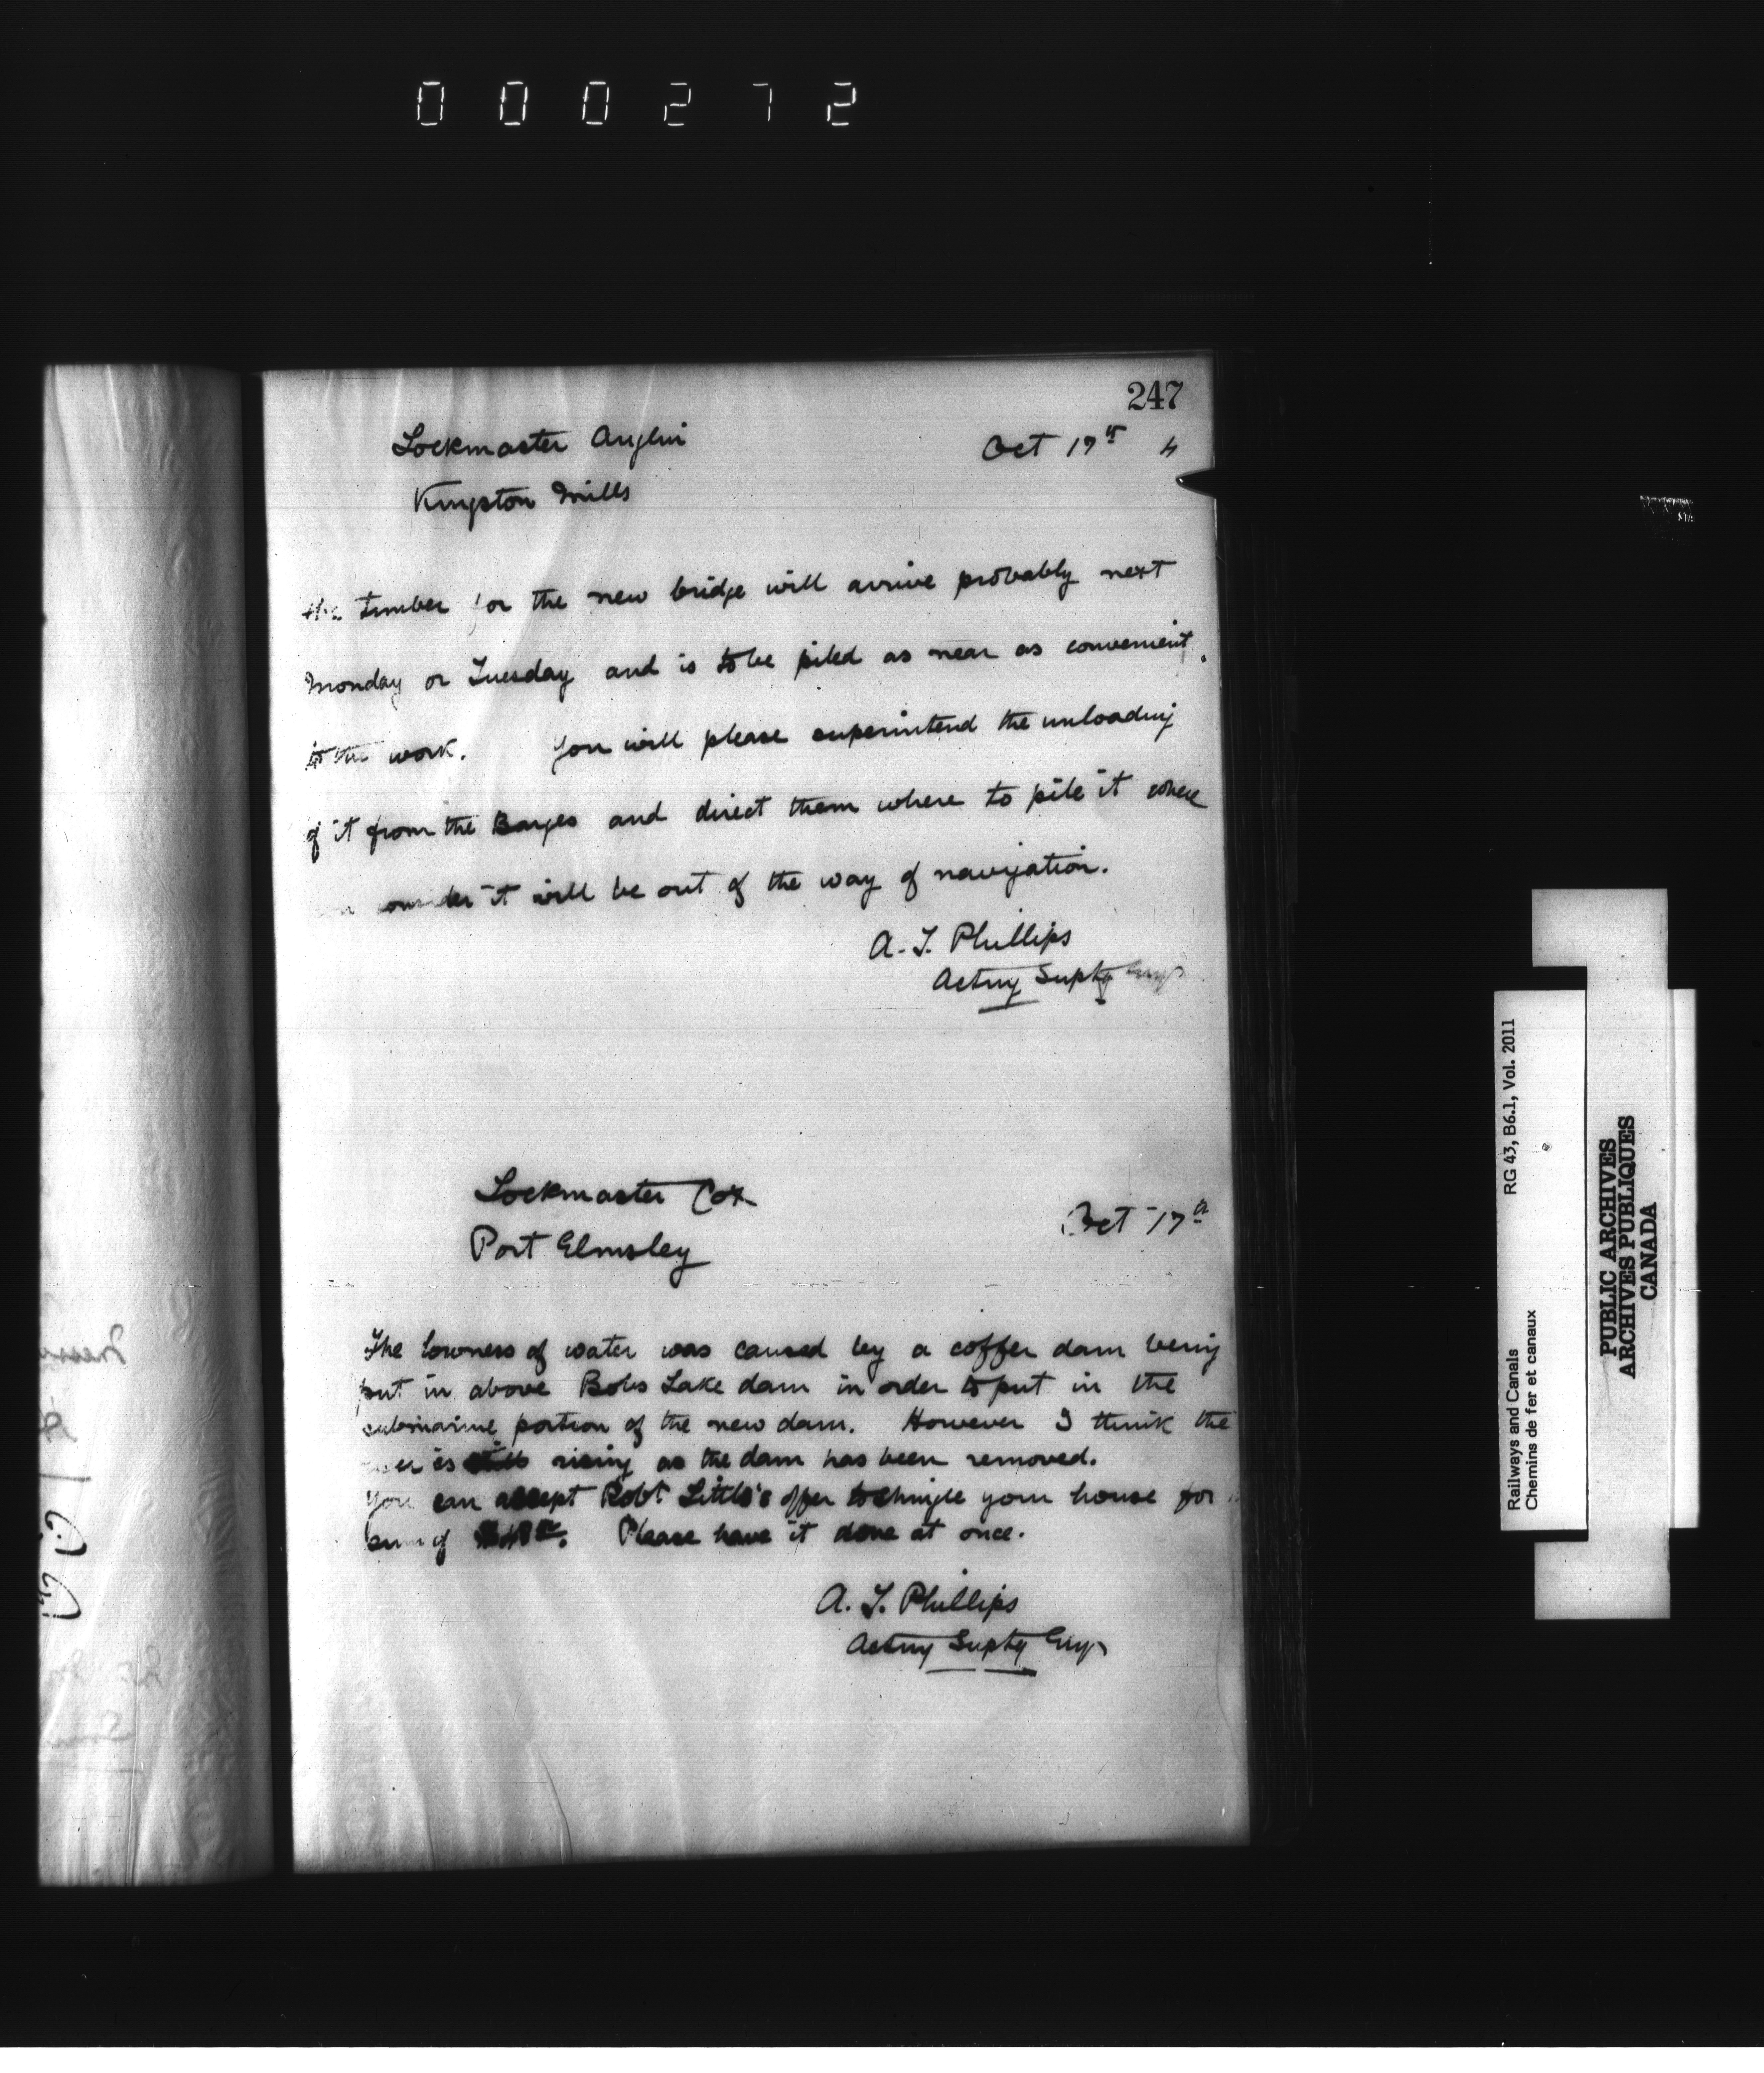 000272
247
Lockmaster Anglin
Oct 17th 4
Kingston Mills
the timber for the new bridge will arrive probably next
Monday or Tuesday and is to be piled as near as convenient
to the work. You will please superintend the unloading
of it from the Barges and direct them where to pile it where
consider it will be out of the way of navigation.
A. T. Phillips
Acting Suptg Engr
Lockmaster Cox
Oct 17th
Port Elmsley
The lowness of water was caused by a coffer dam being
put in above Bobs Lake dam in order to put in the
submarine portion of the new dam. However I think the
is rising as the dam has been removed.
You can accept Robt Little's offer to shingle your house for
sum of Please have it done at once.
A. T. Phillips
Acting Suptg Engr
Railways and Canals RG 43, B6.1, Vol. 2011
Chemins de fer et canaux
PUBLIC ARCHIVES
ARCHIVES PUBLIQUES
CANADA